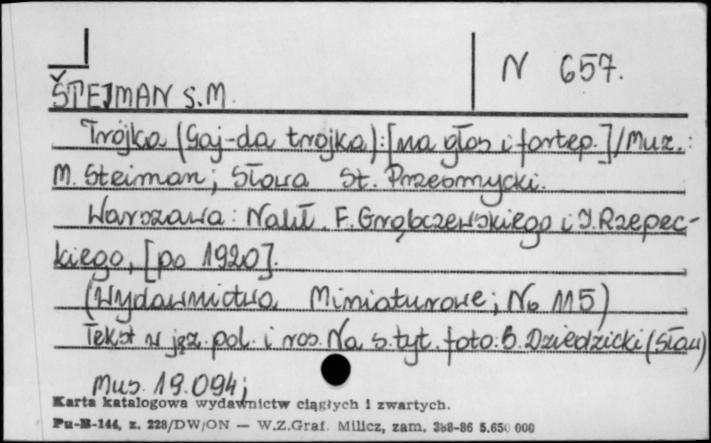 N 657.
ŠTEJMAN S.M.
Trójka (Gaj-da trojka): [na głos i fortep.] / Muz.:
M. Steiman; Słowa St. Przesmycki.
Warszawa: Nakł. F. Grąbczewskiego i J. Rzepec-
kiego, [po 1920].
(Wydawnictwo Miniaturowe; No 115)
Tekst w jęz. pol. i ros. Na s. tyt. foto: B. Dziedzicki (Sław)
Mus. 19.094;
Karta katalogowa wydawnictw ciągłych i zwartych.
Pu-B-144, z. 228/DW/ON — W.Z.Graf. Milicz, zam. 388-86 5.650 000